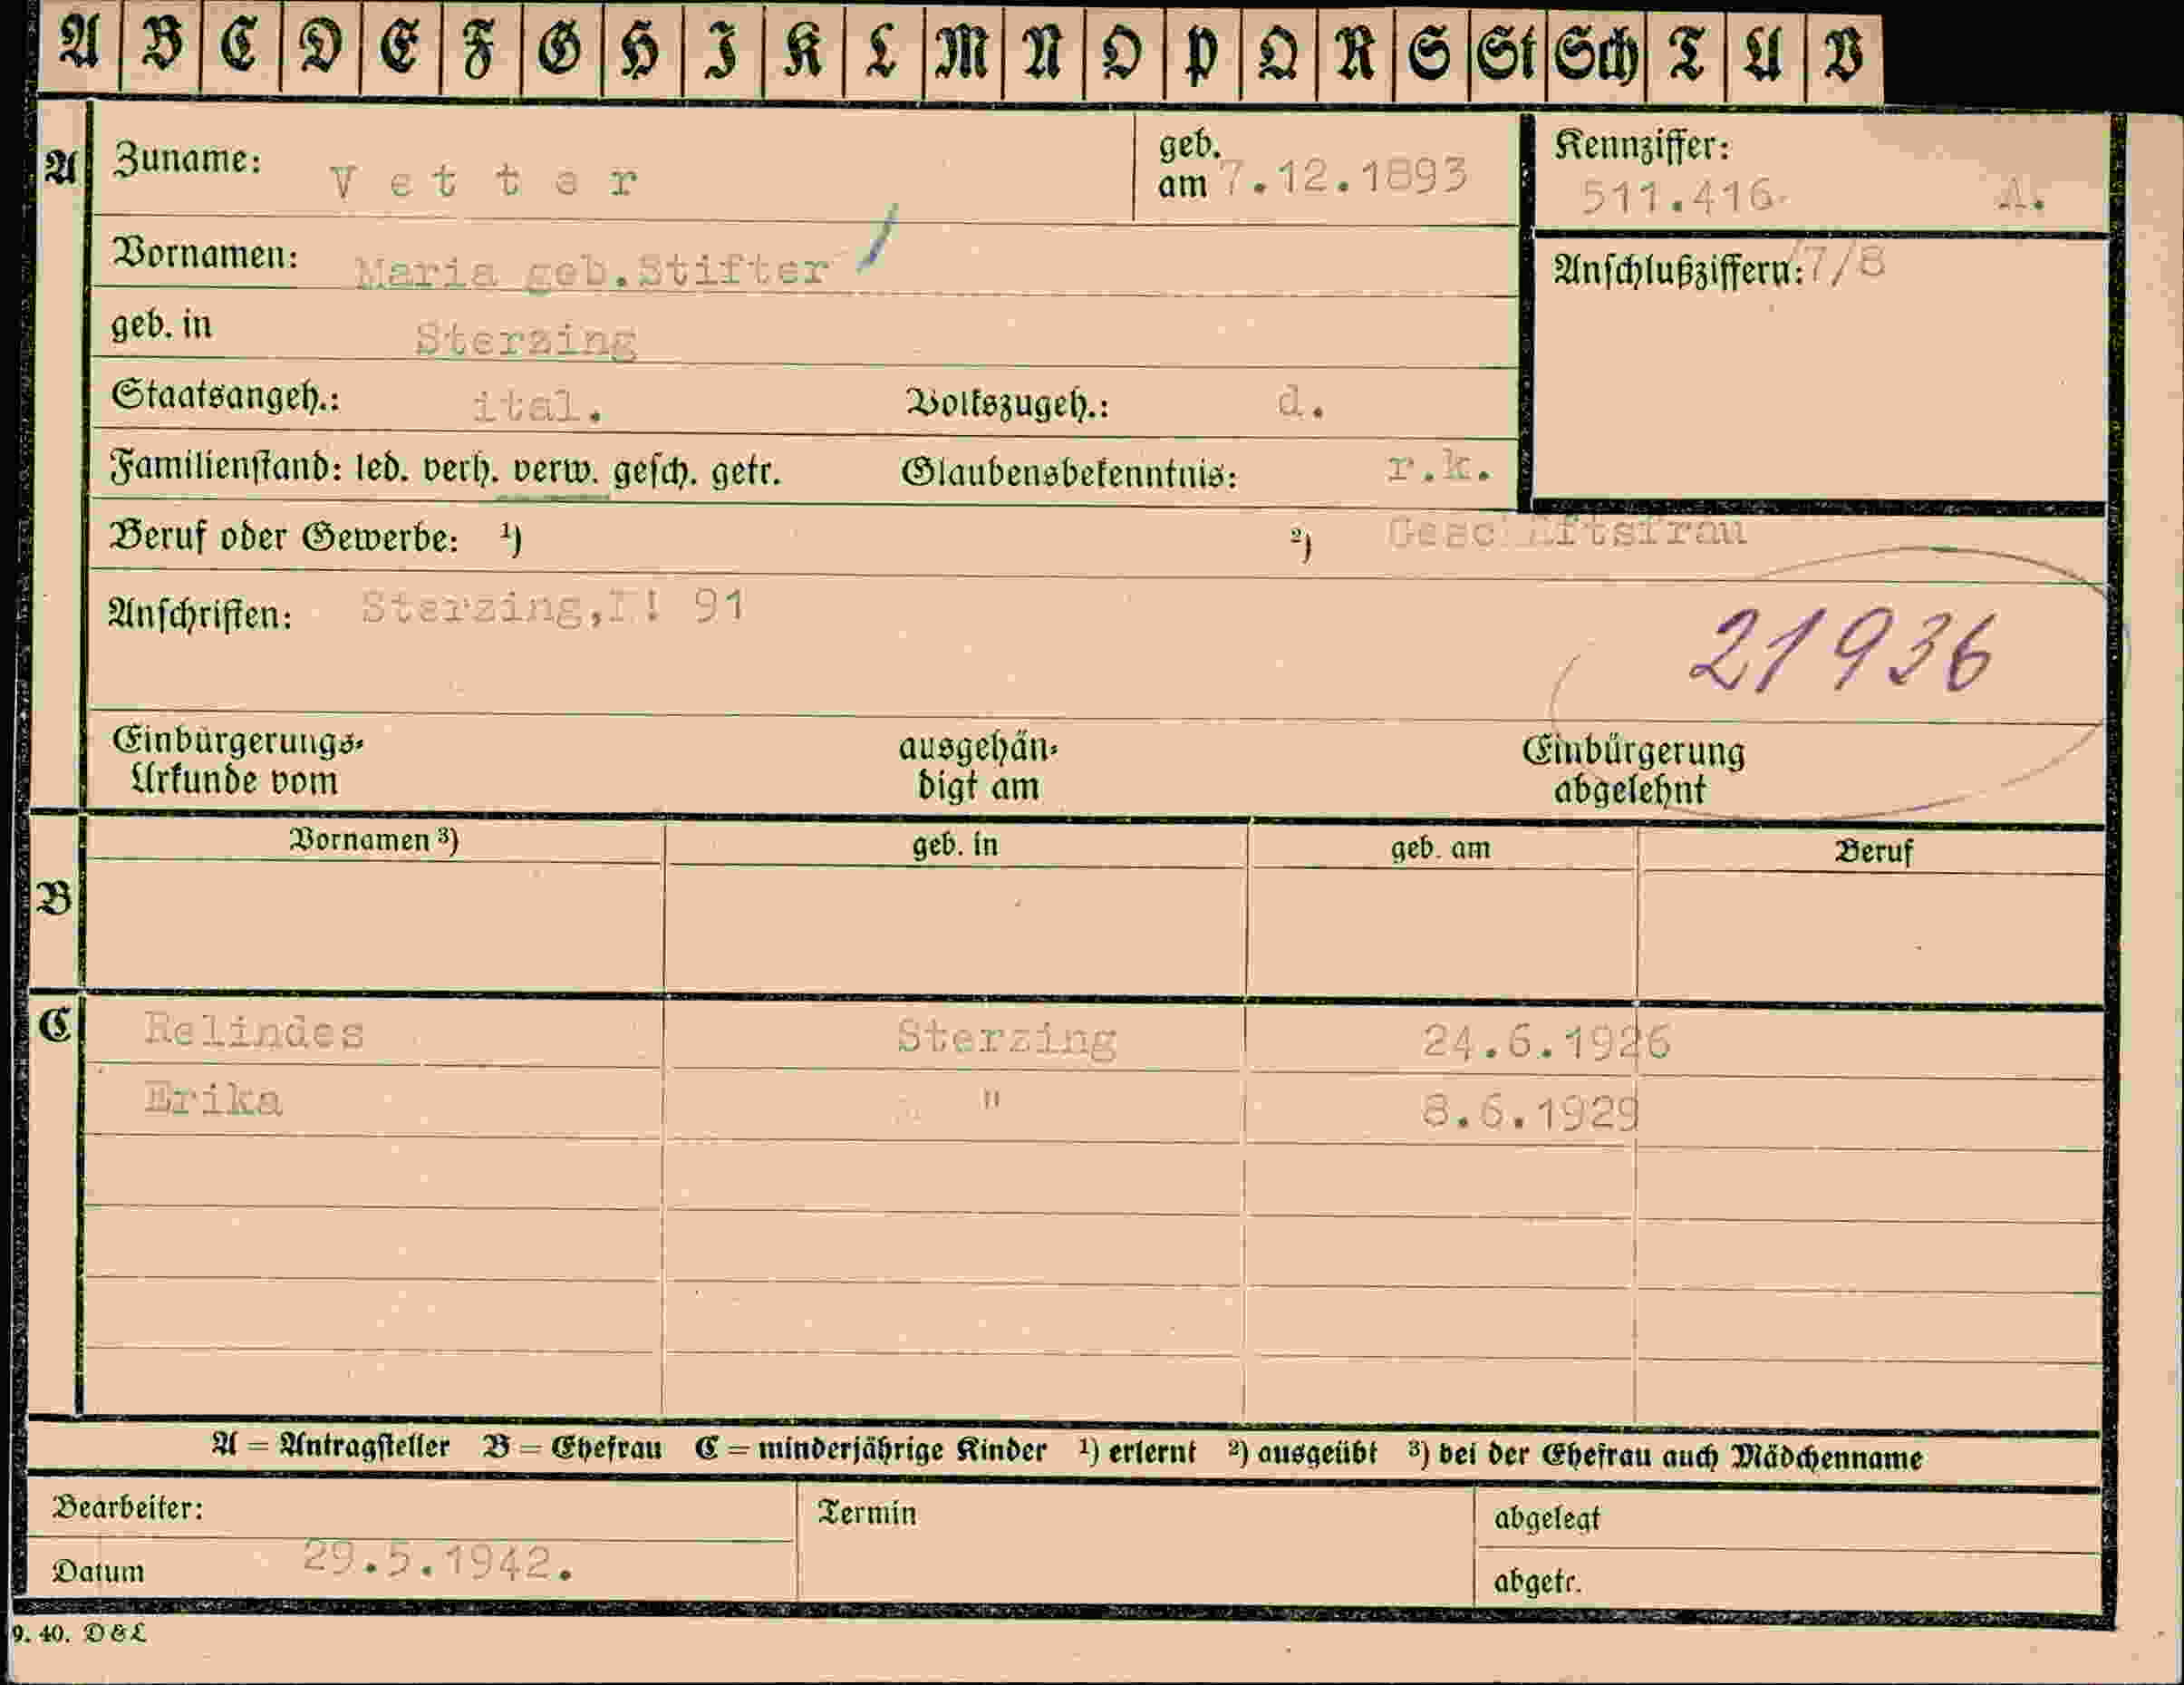 A B C D E F G H I K L M N O P Q R S St Sch T U V
A Zuname: V e t t e r geb. am 7.12.1893 Kennziffer: 511.416. A.
Vornamen: Maria geb.Stifter Anschlußziffern: 7/8
geb. in Sterzing
Staatsangeh.: ital. Volkszugeh.: d.
Familienstand: led. verh. verw. gesch. getr. Glaubensbekenntnis: r.k.
Beruf oder Gewerbe: ¹) ²) Geschäftsfrau
Anschriften: Sterzing, 91
21936
Einbürgerungs- ausgehän- Einbürgerung
Urkunde vom digt am abgelehnt
Vornamen ³) geb. in geb. am Beruf
B
C Relindes Sterzing 24.6.1926
Erika " 8.6.1929
A = Antragsteller B = Ehefrau C = minderjährige Kinder ¹) erlernt ²) ausgeübt ³) bei der Ehefrau auch Mädchenname
Bearbeiter: Termin abgelegt
Datum 29.5.1942. abgetr.
9. 40. D & L